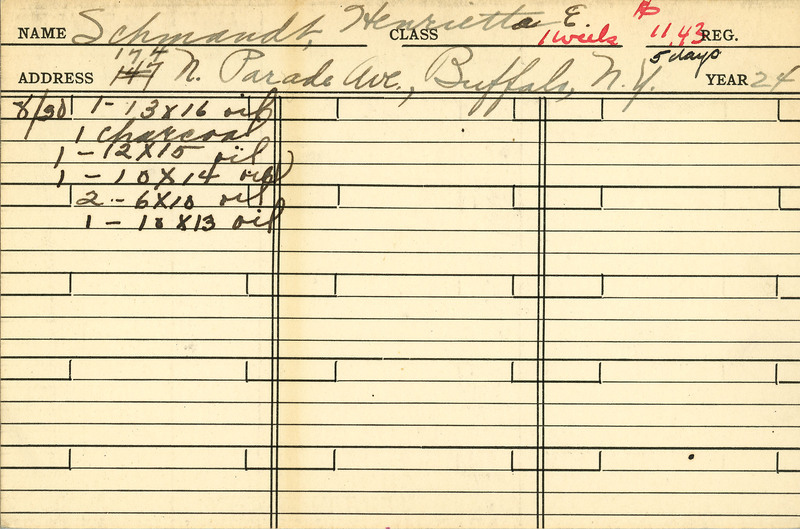 NAME Schmandt, Henrietta E. CLASS 1 week 11.43 REG.
5 days
174
ADDRESS 147 N. Parade Ave., Buffalo, N.Y. YEAR 24
8/30 1- 13x16 oil
1 charcoal
1 - 12x15 oil
1 - 10x14 oil
2 - 6x10 oil
1 - 10x13 oil